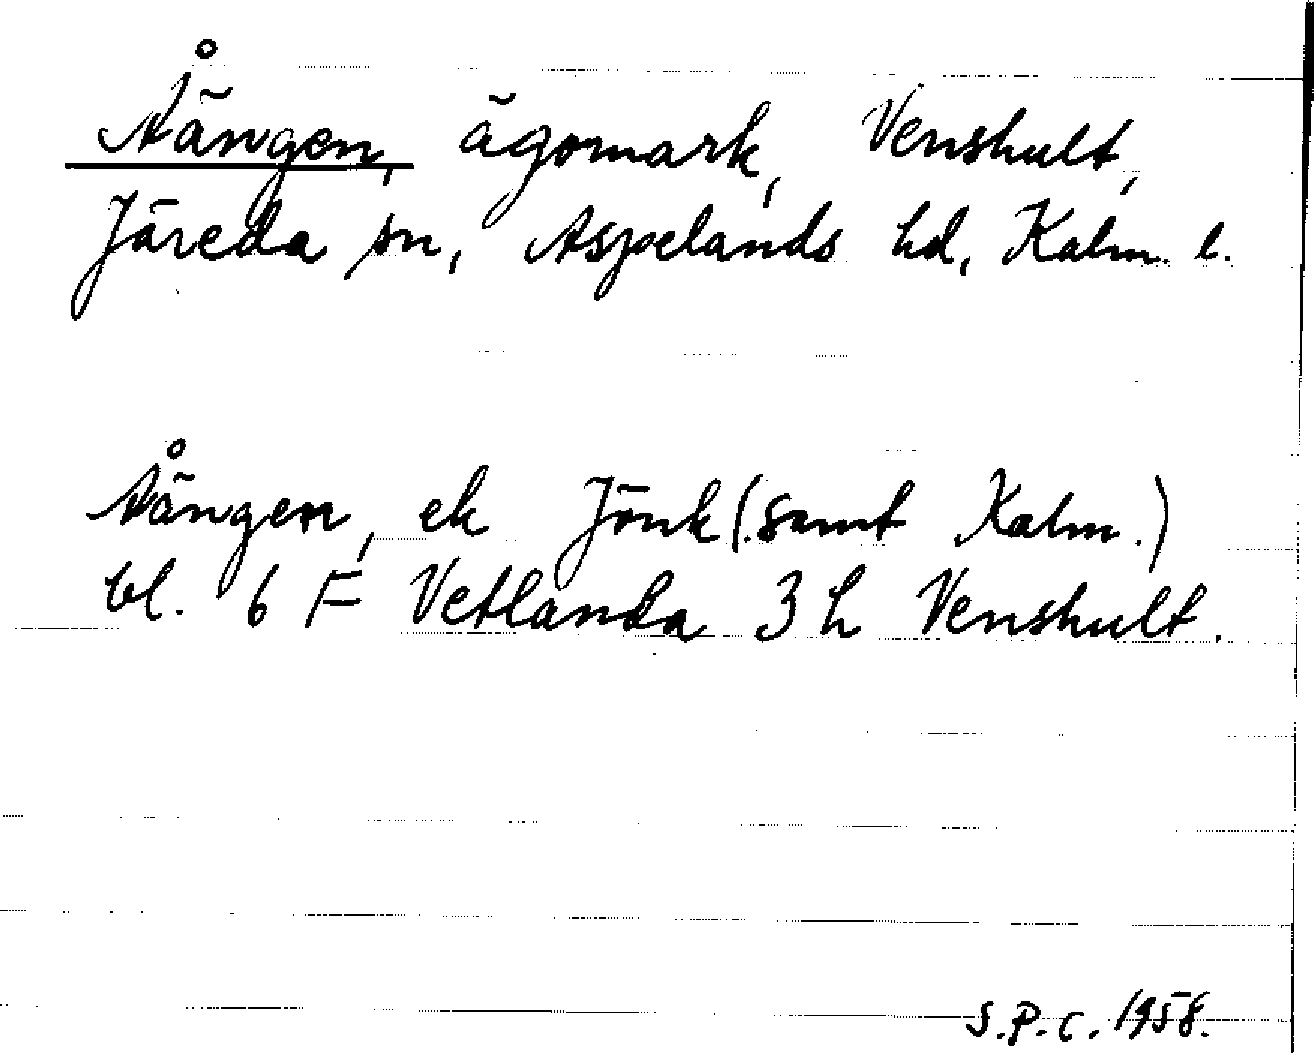 Åängen, ägomark, Venshult,
Järeda sn, Aspelands hd, Kalm. l.
Åängen, ek Jönk (samt Kalm.)
bl. 6 F Vetlanda 3 h Venshult.
S.P.C. 1958.